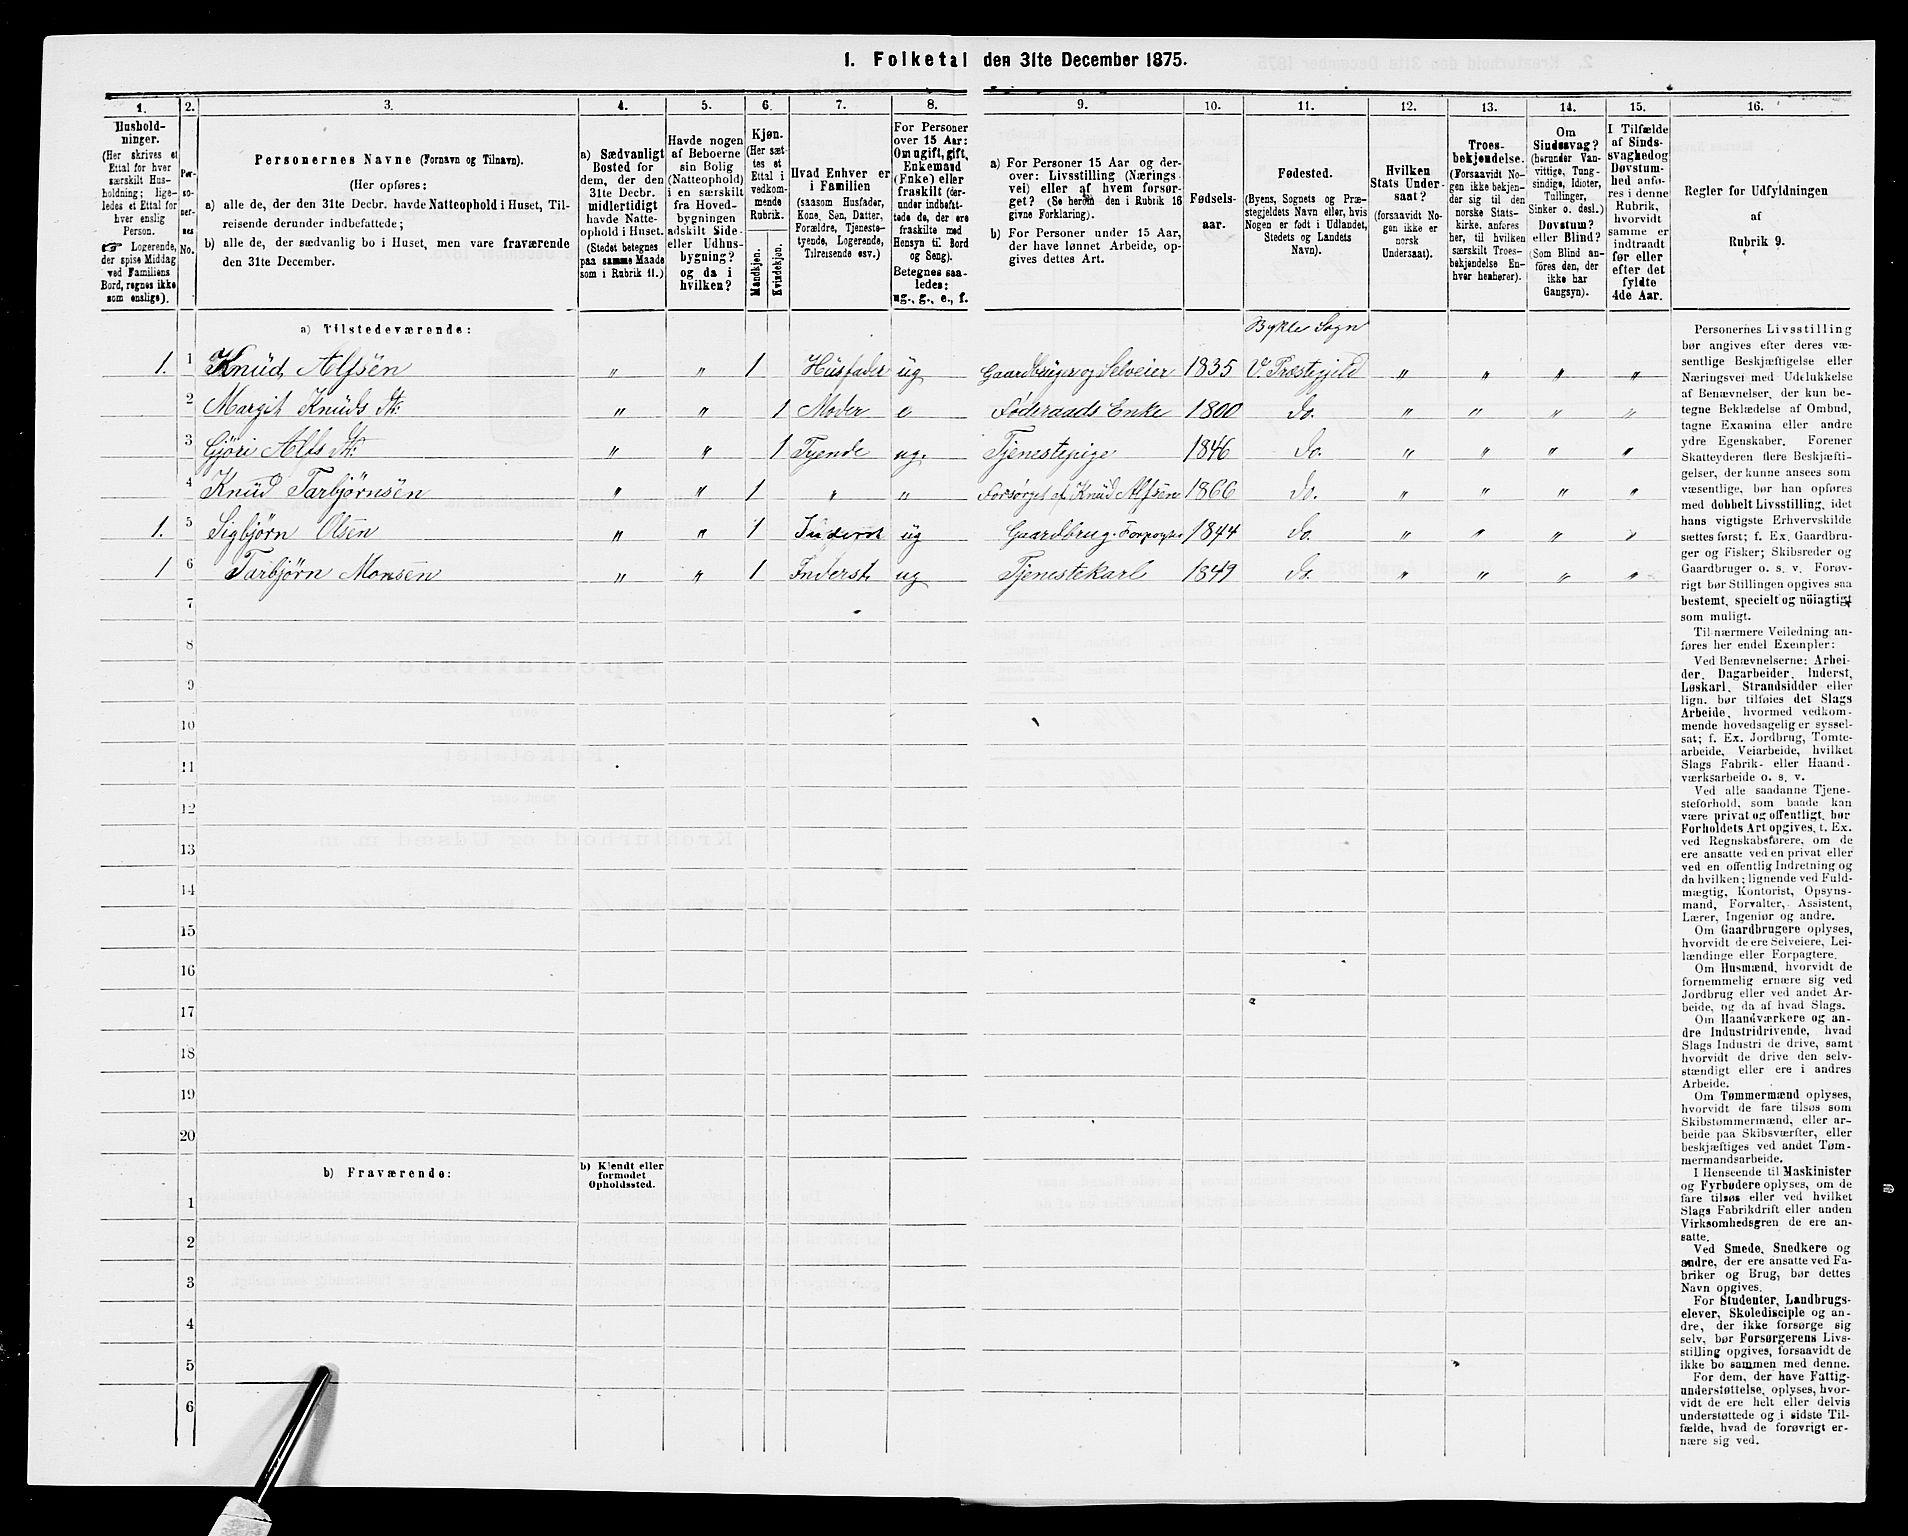 1. Folketal den 31te December 1875.
1. 2. 3. 4. 5. 6. 7. 8. 9. 10. 11. 12. 13. 14. 15. 16.
Hushold-
ninger.
(Her skrives et
Ettal for hver
særskilt Hus-
holdning; lige-
ledes et Ettal for
hver enslig
Person.
☞ Logerende,
der spise Middag
ved Familiens
Bord, regnes ikke
som enslige).
Per-
so-
ner-
nes
No.
Personernes Navne (Fornavn og Tilnavn).
(Her opføres:
a) alle de, der den 31te Decbr. havde Natteophold i Huset, Til-
reisende derunder indbefattede;
b) alle de, der sædvanlig bo i Huset, men vare fraværende
den 31te December.
a) Sædvanligt
Bosted for
dem, der den
31te Decbr.
midlertidigt
havde Natte-
ophold i Huset.
(Stedet betegnes
paa samme Maade
som i Rubrik 11.)
Havde nogen
af Beboerne
sin Bolig
(Natteophold)
i en særskilt
fra Hoved-
bygningen
adskilt Side-
eller Udhus-
bygning?
og da i
hvilken?
Kjøn.
(Her sæt-
tes et
Ettal i
vedkom-
mende
Rubrik.
Mandkjøn.
Kvindekjøn.
Hvad Enhver er
i Familien
(saasom Husfader,
Kone, Søn, Datter,
Forældre, Tjeneste-
tyende, Logerende,
Tilreisende osv.)
For Personer
over 15 Aar:
Om ugift, gift,
Enkemand
(Enke) eller
fraskilt (der-
under indbefat-
tede de, der ere
fraskilte med
Hensyn til Bord
og Seng).
Betegnes saa-
ledes:
ug., g., e., f.
a) For Personer 15 Aar og der-
over: Livsstilling (Nærings-
vei) eller af hvem forsør-
get? (Se herom den i Rubrik 16
givne Forklaring).
b) For Personer under 15 Aar,
der have lønnet Arbeide, op-
gives dettes Art.
Fødsels-
aar.
Fødested.
(Byens, Sognets og Præ-
stegjeldets Navn eller, hvis
Nogen er født i Udlandet,
Stedets og Landets
Navn).
Hvilken
Stats Under-
saat?
(forsaavidt No-
gen ikke er
norsk
Undersaat).
Troes-
bekjendelse.
(Forsaavidt No-
gen ikke bekjen-
der sig til den
norske Stats-
kirke, anføres
her, til hvilken
særskilt Troes-
bekjendelse En-
hver henhører).
Om
Sindssvag?
(herunder Van-
vittige, Tung-
sindige, Idioter,
Tullinger,
Sinker o. desl.)
Døvstum?
eller Blind?
(Som Blind an-
føres den, der
ikke har
Gangsyn).
I Tilfælde
af Sinds-
svaghed og
Døvstum-
hed anfø-
res i denne
Rubrik,
hvorvidt
samme er
indtraadt
før eller
efter det
fyldte
4de Aar.
Regler for Udfyldningen
af
Rubrik 9.
a) Tilstedeværende:
Bykle Sogn
1. 1 Knüd Alfsen " " 1 Husfader ug Gaardbruger og Selveier 1835 V. Præstegjeld " " " "
2 Margit Knüds Dtr: " " 1 Moder e Føderaads Enke 1800 Do. " " " "
3 Gjøri Alfs Dtr: " " 1 Tyende ug. Tjenestepige 1846 Do. " " " "
4 Knüd Tarbjørnsen " " 1 " " Forsørget af Knüd Alfsen 1866 Do. " " " "
1. 5 Sigbjørn Olsen " " 1 Inderst ug Gaardbrug. 1844 Do. " " " "
1 6 Tarbjørn Monsen " " 1 Inderst ug Tjenestekarl 1849 Do. " " " "
7
8
9
10
11
12
13
14
15
16
17
18
19
20
b) Fraværende:
b) Kjendt eller
formodet
Opholdssted.
1
2
3
4
5
6
Personernes Livsstilling
bør angives efter deres væ-
sentlige Beskjæftigelse eller
Næringsvei med Udelukkelse
af Benævnelser, der kun be-
tegne Beklædelse af Ombud,
tagne Examina eller andre
ydre Egenskaber. Forener
Skatteyderen flere Beskjæfti-
gelser, der kunne ansees som
væsentlige, bør han opføres
med dobbelt Livsstilling, idet
hans vigtigste Erhvervskilde
sættes først; f. Ex. Gaardbru-
ger og Fisker; Skibsreder og
Gaardbruger o. s. v. Forøv-
rigt bør Stillingen opgives saa
bestemt, specielt og nöiagtigt
som muligt.
Til nærmere Veiledning an-
føres her endel Exempler:
Ved Benævnelserne: Arbei-
der, Dagarbeider, Inderst,
Løskarl, Strandsidder eller
lign. bør tilføies det Slags
Arbeide, hvormed vedkom-
mende hovedsagelig er syssel-
sat; f. Ex. Jordbrug, Tomte-
arbeide, Veiarbeide, hvilket
Slags Fabrik- eller Haand-
værksarbeide o. s. v.
Ved alle saadanne Tjene-
steforhold, som baade kan
være privat og offentligt, bør
Forholdets Art opgives, t. Ex.
ved Regnskabsførere, om de
ere ansatte ved en privat eller
ved en offentlig Indretning og
da hvilken; lignende ved Fuld-
mægtig, Kontorist, Opsyns-
mand, Forvalter, Assistent,
Lærer, Ingeniør og andre.
Om Gaardbrugere oplyses,
hvorvidt de ere Selveiere, Lei-
lændinge eller Forpagtere.
Om Husmænd, hvorvidt de
fornemmelig ernære sig ved
Jordbrug eller ved andet Ar-
beide, og da af hvad Slags.
Om Haandværkere og an-
dre Industridrivende, hvad
Slags Industri de drive, samt
hvorvidt de drive den selv-
stændigt eller ere i andres
Arbeide.
Om Tømmermænd oplyses,
hvorvidt de fare tilsøs som
Skibstømmermænd, eller ar-
beide paa Skibsværfter, eller
beskjæftiges ved andet Tøm-
mermandsarbeide.
I Henseende til Maskinister
og Fyrbødere oplyses, om de
fare tilsøs eller ved hvilket
Slags Fabrikdrift eller anden
Virksomhedsgren de ere an-
satte.
Ved Smede, Snedkere og
andre, der ere ansatte ved Fa-
briker og Brug, bør dettes
Navn opgives.
For Studenter, Landbrugs-
elever, Skoledisciple og an-
dre, der ikke forsørge sig
selv, bør Forsørgerens Livs-
stilling opgives, forsaavidt de
ikke bo sammen med denne.
For dem, der have Fattig-
understøttelse, oplyses, hvor-
vidt de ere helt eller delvis
understøttede og i sidste Til-
fælde, hvad de forøvrigt er-
nære sig ved.